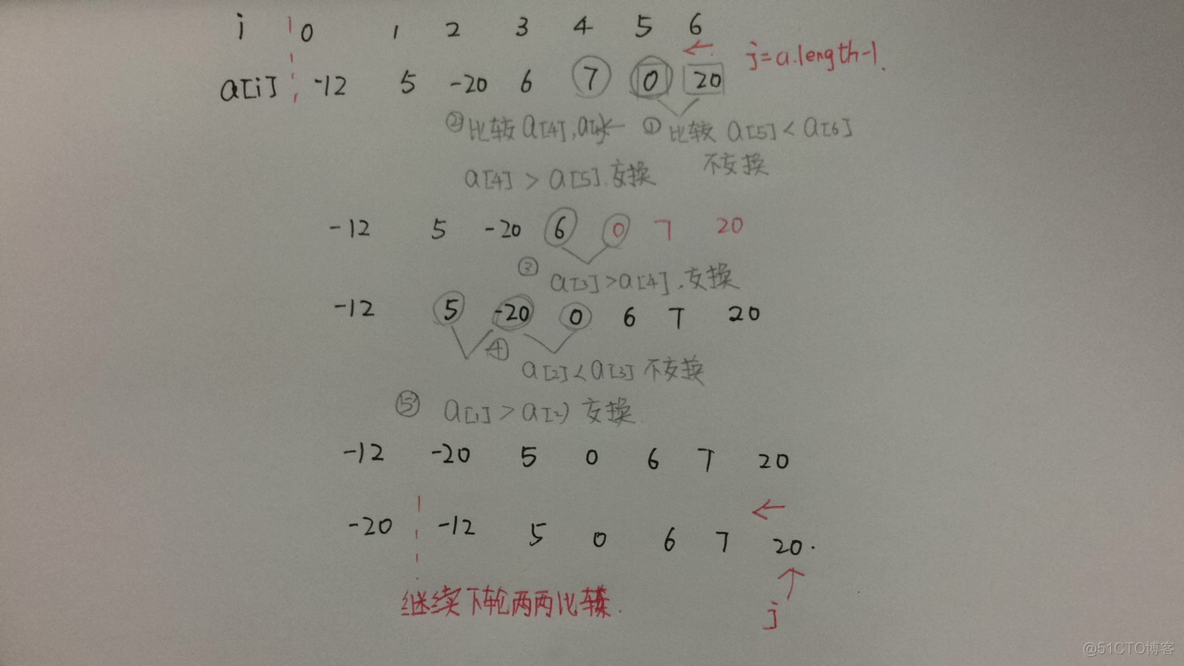 i 0 1 2 3 4 5 6
a[i] -12 5 -20 6 7 0 20 j=a.length-1.
②比较a[4], ①比较 a[5]<a[6]
a[4] > a[5].交换 不交换
-12 5 -20 6 0 7 20
③ a[3]>a[4].交换
-12 5 -20 0 6 7 20
④ a[2]<a[3] 不交换
⑤ a[1]>a[2] 交换
-12 -20 5 0 6 7 20
-20 -12 5 0 6 7 20.
继续下轮两两比较.
j
@51CTO博客